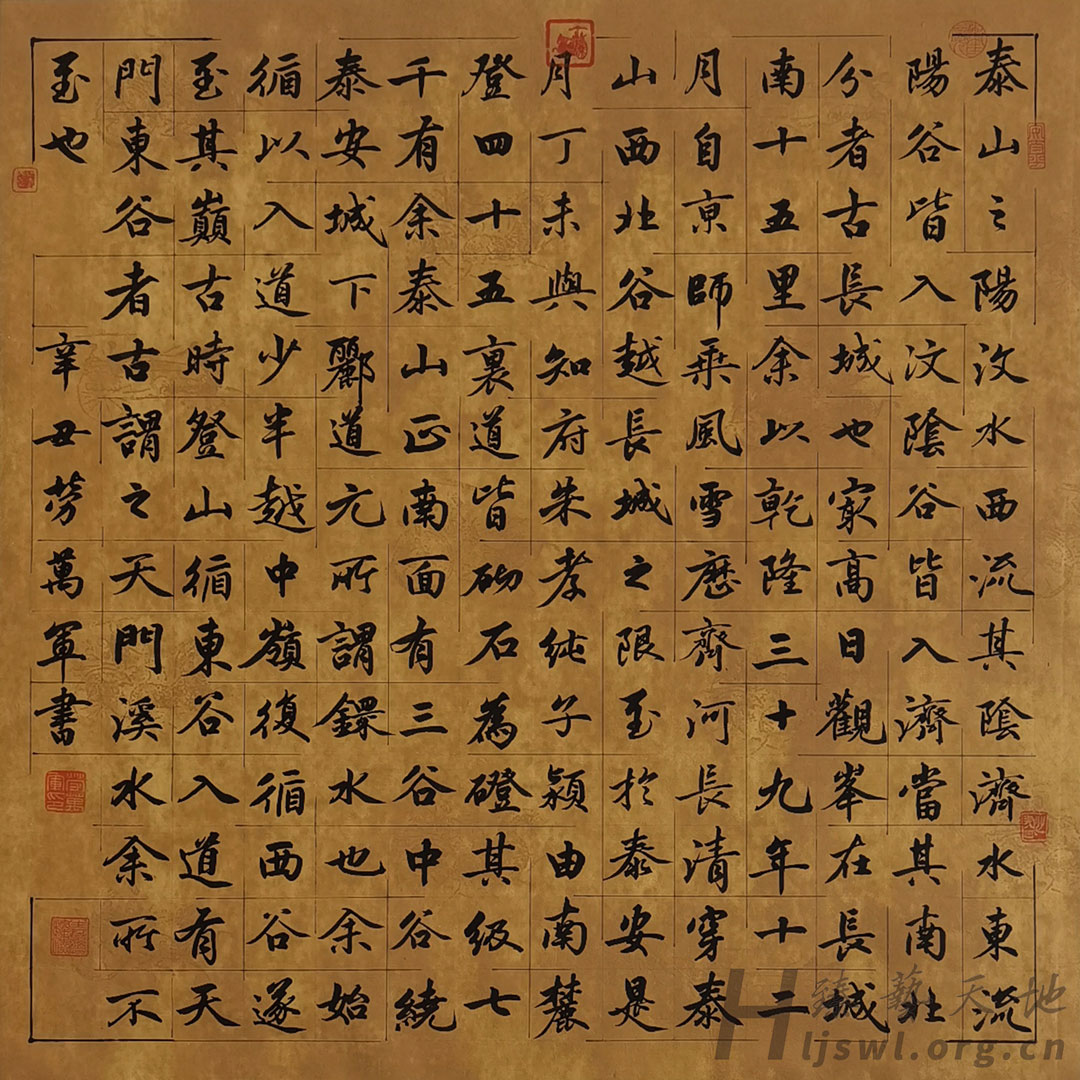 泰山之陽汶水西流其陰濟水東流
陽谷皆入汶陰谷皆入濟當其南北
分者古長城也最高日觀峯在長城
南十五里余以乾隆三十九年十二
月自京師乘風雪歷齊河長清穿泰
山西北谷越長城之限至於泰安是
月丁未與知府朱孝純子潁由南麓
登四十五裏道皆砌石為磴其級七
千有余泰山正南面有三谷中谷繞
泰安城下酈道元所謂水也余始
循以入道少半越中嶺復循西谷遂
至其巔古時登山循東谷入道有天
門東谷者古謂之天門溪水余所不
至也 辛丑勞萬軍書
臻藝天地
Hljswl.org.cn